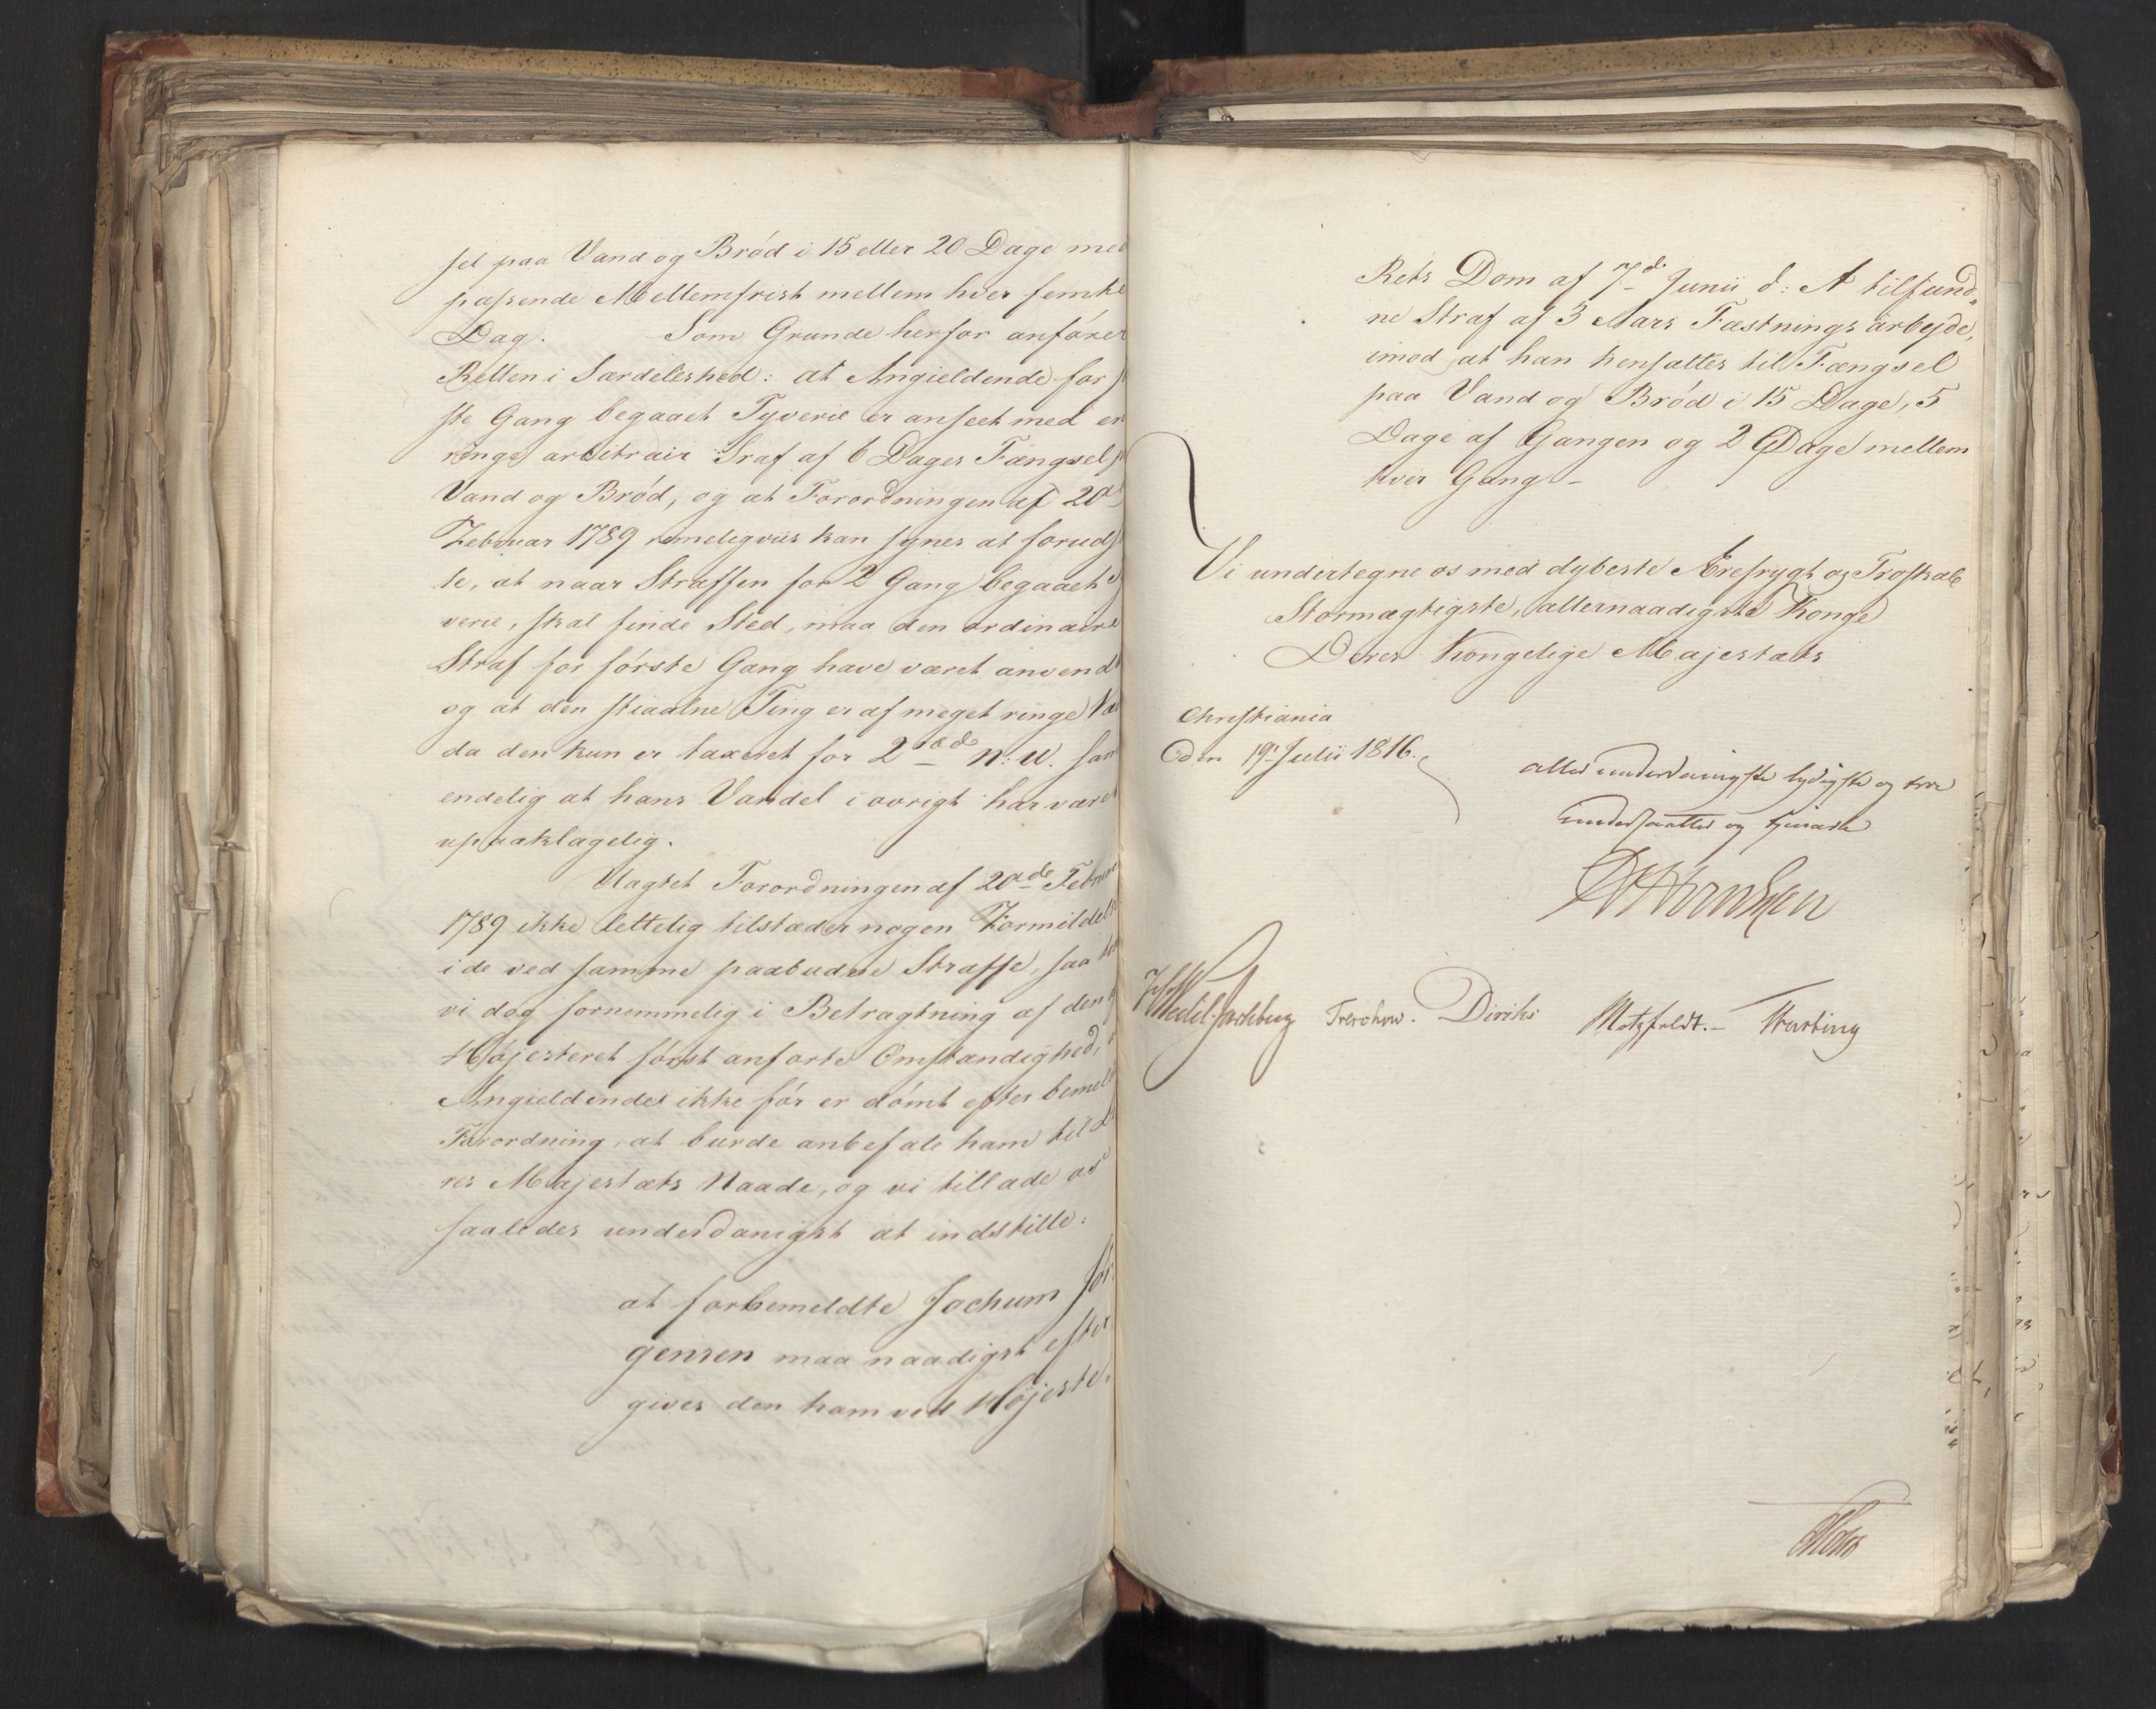 sel paa Vand og Brød i 15 eller 20 Dage med
passende Mellemfrist mellem hver femte
Dag. Som Grunde herfor anfører
Retten i Særdeleshed: at Angieldende for
ste Gang begaaet Tyverie er anseet med en
ringe arbitrair Straf af 6 Dages Fængsel
Vand og Brød, og at Forordningen af 20d
Februar 1789 rimeligviis kan synes at foruds
te, at naar Straffen for 2 Gang begaaet
verie, skal finde Sted, maa den ordinaire
Straf for første Gang have været anvendt
og at den stiaalne Ting er af meget ringe Væ
da den kun er taxeret for 2 rbd N: V. samt
endelig at hans Vandel i øvrigt har været
upaaklagelig.
Uagtet Forordningen af 20de Februar
1789 ikke lettelig tilstæder nogen Formildelse
i de ved samme paabudne Straffe, saa
vi dog fornemmelig i Betragtning af den
Højesteret først anførte Omstændighed,
Angieldende ikke før er dømt efter bemeldte
Forordning, at burde anbefale ham til De
res Majestæts Naade, og vi tillade os
saaledes underdanigst at indstille:
at forbemeldte Jochum Jør
gensen maa naadigst efter
gives den ham ved Højeste
Rets Dom af 7d Junii d: A tilfund
ne Straf af 3 Aars Fæstnings arbejde,
imod at han hensættes til Fængsel
paa Vand og Brød i 15 Dage, 5
Dage af Gangen og 2 Dage mellem
hver Gang –
Vi undertegne os med dybeste Ærefrygt og Troskab
Stormægtigste, allernaadigste Konge
Deres Kongelige Majestæts
Christiania
den 19 Julii 1816.
allerunderdanigste lydigste og troe
undersaatter og tjenere
Wedel-Jarlsberg Treschow. Diriks Motzfeldt. – Krebting